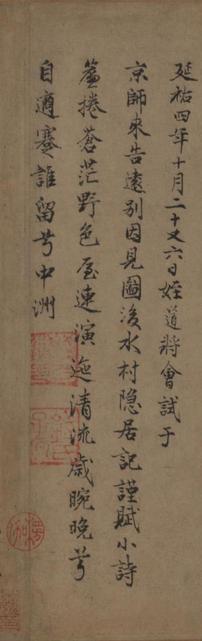 延祐四年十月二十又六日姪道將會試于
京師來告遠別因見圖後水村隱居記謹賦小詩
簾捲蒼茫野色屋連演迤清流歲晼晚兮
自適蹇誰留兮中洲